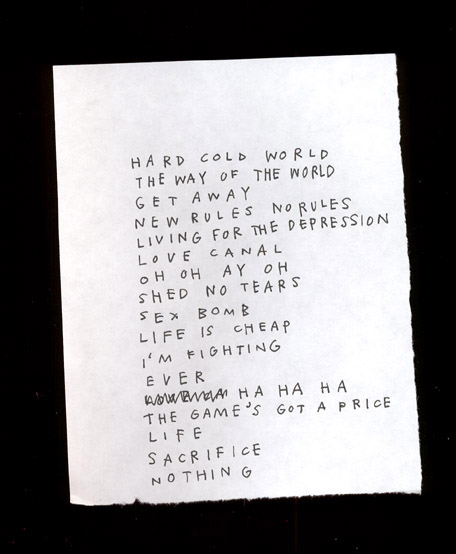 HARD COLD WORLD
THE WAY OF THE WORLD
GET AWAY
NEW RULES NO RULES
LIVING FOR THE DEPRESSION
LOVE CANAL
OH OH AY OH
SHED NO TEARS
SEX BOMB
LIFE IS CHEAP
I'M FIGHTING
EVER
HA HA HA
THE GAME'S GOT A PRICE
LIFE
SACRIFICE
NOTHING